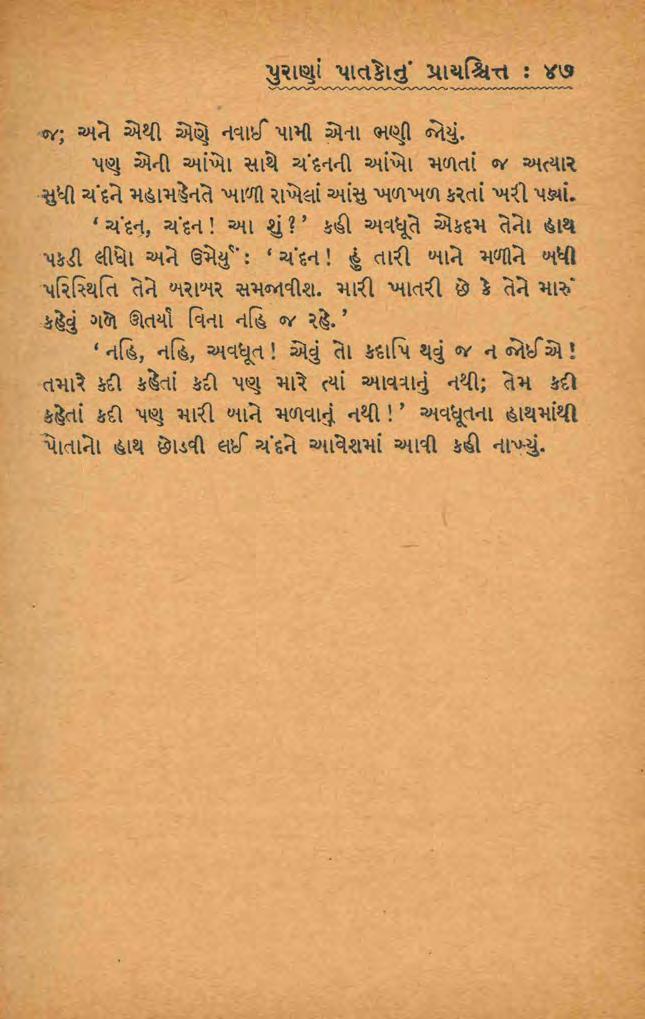 પુરાણાં પાતકોનું પ્રાયશ્ચિત્ત : ૪૭
જ; અને એથી એણે નવાઈ પામી એના ભણી જોયું.
પણ એની આંખો સાથે ચંદનની આંખો મળતાં જ અત્યાર
સુધી ચંદને મહામહેનતે ખાળી રાખેલાં આંસુ ખળખળ કરતાં ખરી પડ્યાં.
‘ ચંદન, ચંદન! આ શું?’ કહી અવધૂતે એકદમ તેનો હાથ
પકડી લીધો અને ઉમેર્યું: ‘ ચંદન! હું તારી બાને મળીને બધી
પરિસ્થિતિ તેને બરાબર સમજાવીશ. મારી ખાતરી છે કે તેને મારું
કહેવું ગળે ઊતર્યા વિના નહિ જ રહે.’
‘ નહિ, નહિ, અવધૂત! એવું તો કદાપિ થવું જ ન જોઈએ!
તમારે કદી કહેતાં કદી પણ મારે ત્યાં આવવાનું નથી; તેમ કદી
કહેતાં કદી પણ મારી બાને મળવાનું નથી!’ અવધૂતના હાથમાંથી
પોતાનો હાથ છોડવી લઈ ચંદને આવેશમાં આવી કહી નાખ્યું.